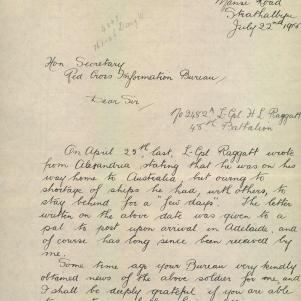 Manse Road
Strathalbyn
July 22nd 1916
Hon. Secretary
Red Cross Information Bureau,
Dear Sir,
No 2482A L-Cpl H L Raggatt
48th Battalion
On April 29th last, L-Cpl Raggatt wrote
from Alexandria, stating that he was on his
way home to Australia, but owing to
shortage of ships he had, with others, to
stay behind for a "few days". The letter
written on the above date was given to a
pal to post upon arrival in Adelaide, and
of course has long since been received by
me.
Some time ago your Bureau very kindly
obtained news of the above soldier for me, and
I shall be deeply grateful if you are able